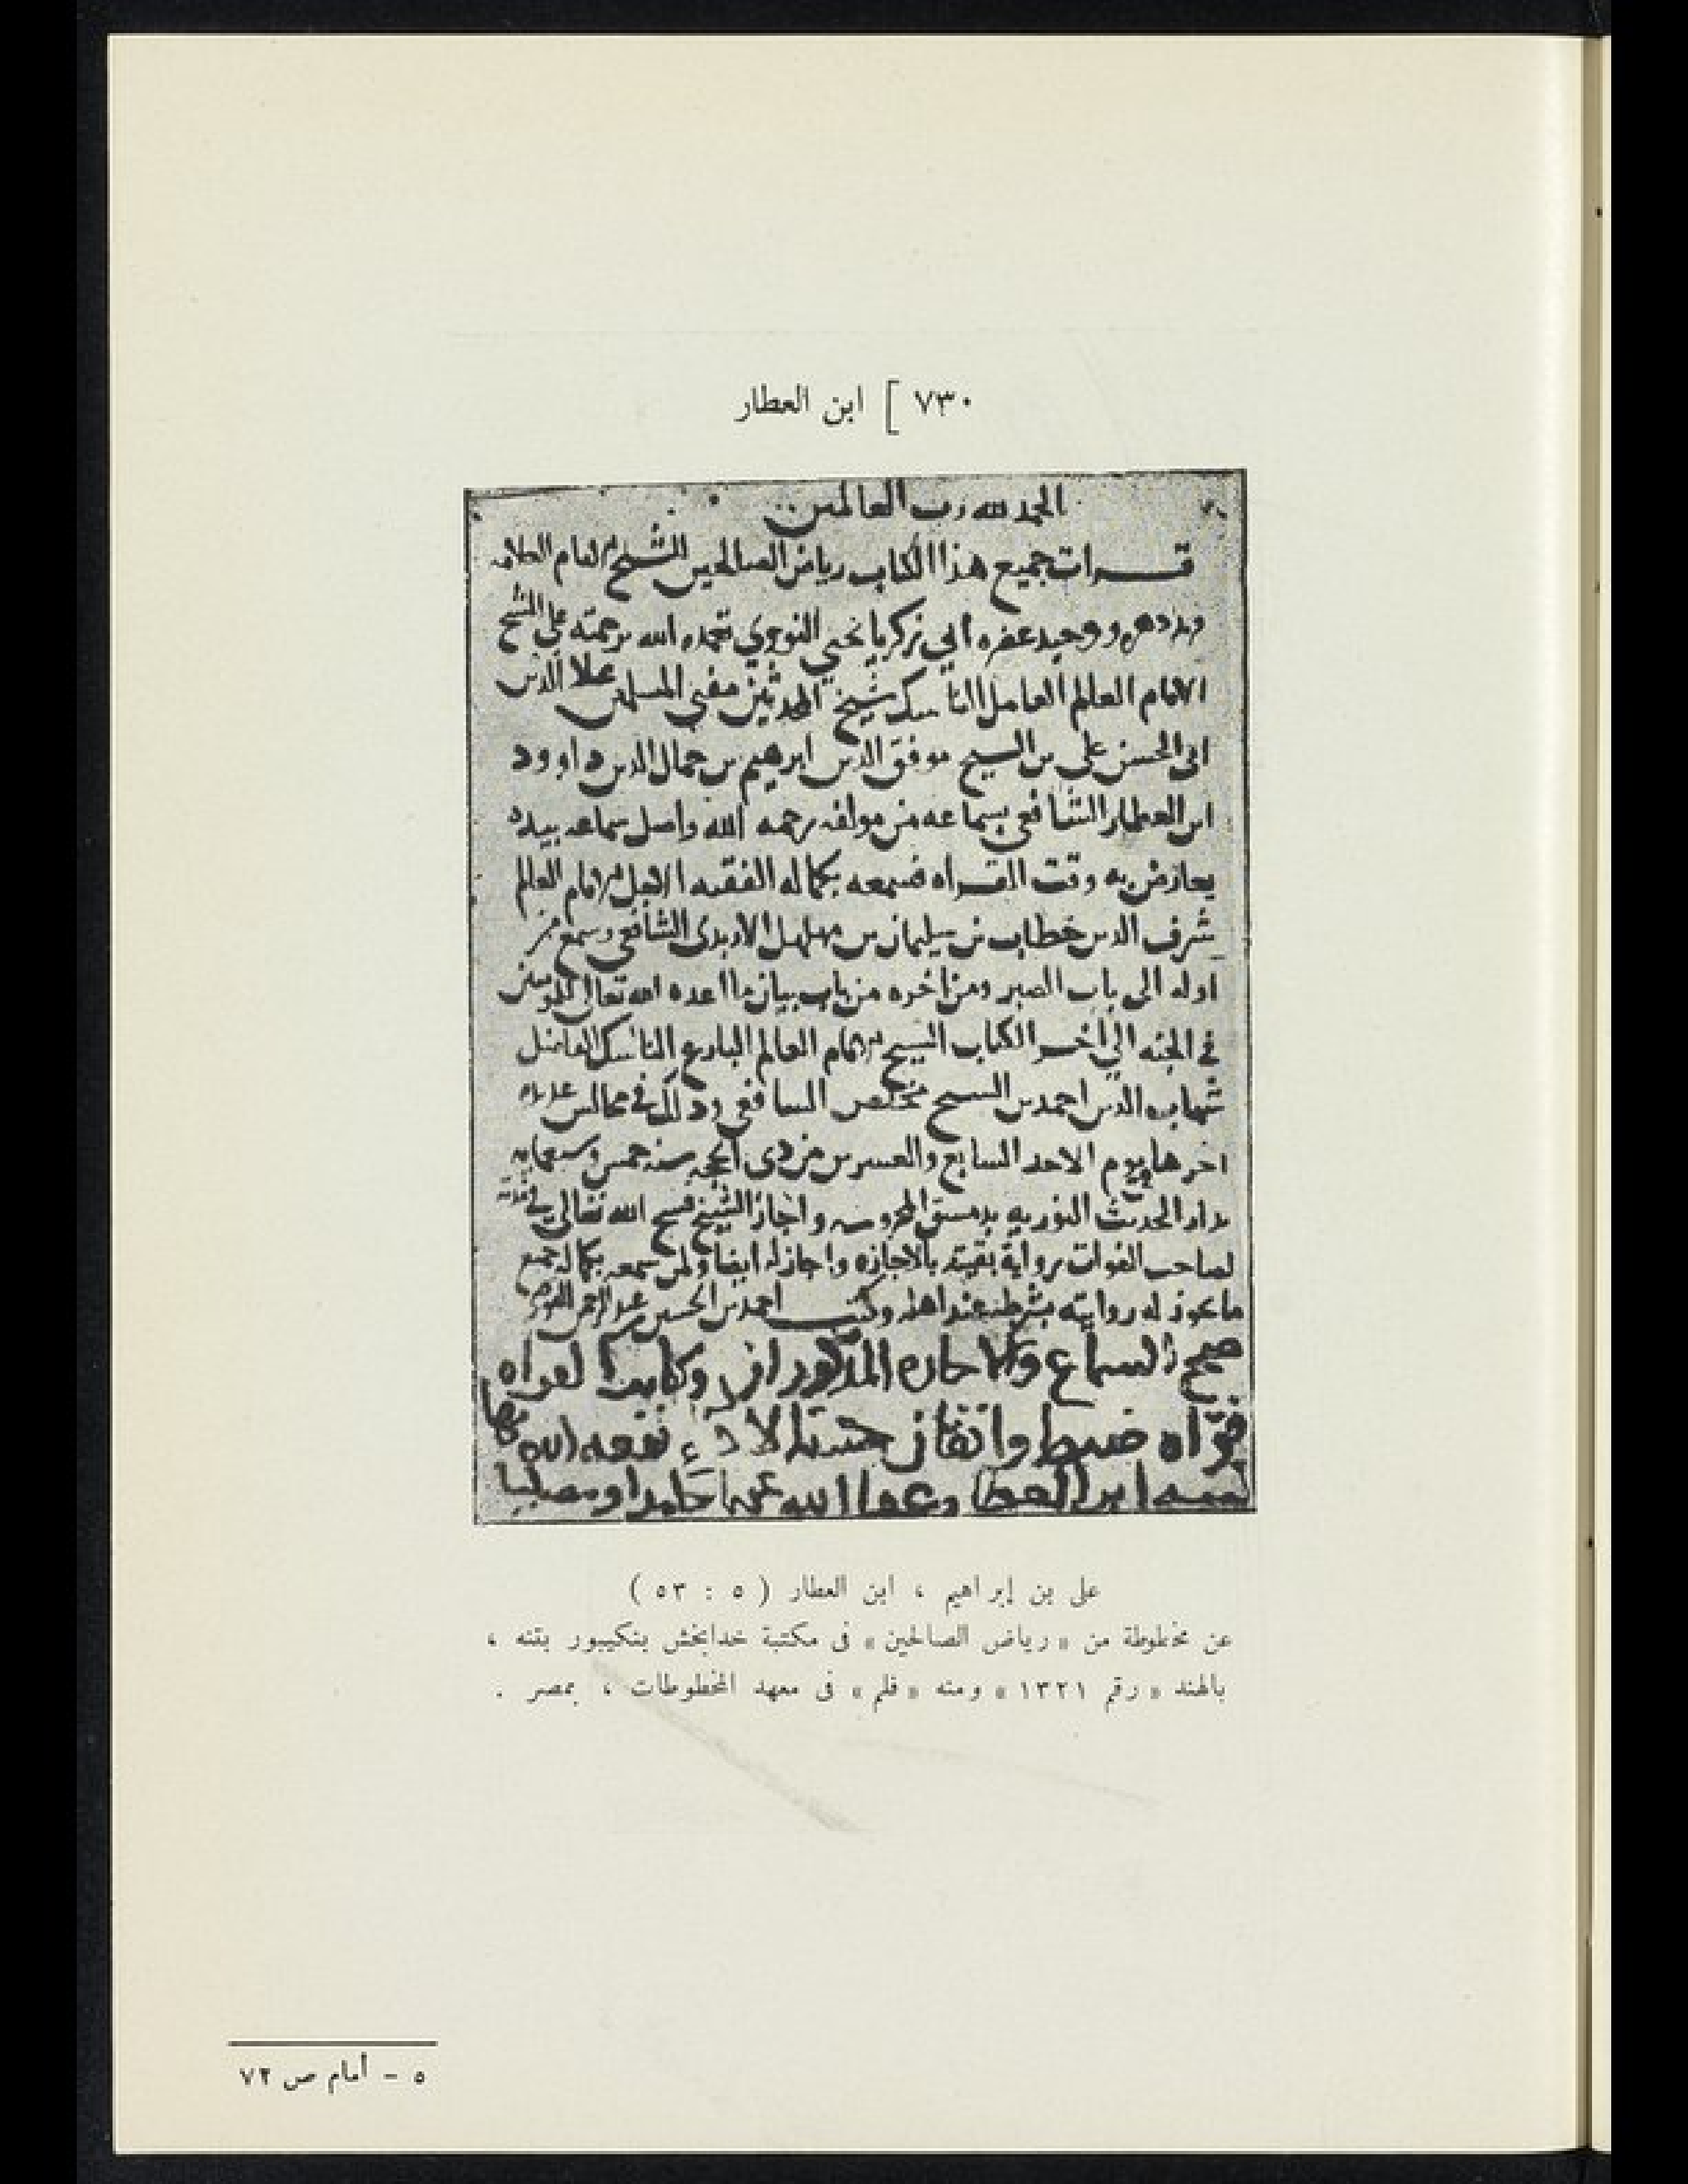 ٧٣٠ [ ابن العطار
الحمد لله رب العالمين
قرات جميع هذا الكتاب رياض الصالحين للشيخ الامام العلامه
دهره ووحيد عصره ابي زكريا يحيى النووي تغمده الله برحمته على الشيخ
الامام العالم العامل الناسك شيخ المحدثين مفتي المسلمين علا الدين
ابى الحسن على بن الشيخ موفق الدين ابرهيم بن جمال الدين داوود
ابن العطار الشافعي بسماعه من مولفه رحمه الله واصل سماعه بيده
يعارض به وقت القراه فسمعه بكماله الفقيه الاجل الامام العالم
شرف الدين خطاب بن سليمان بن مهلهل الاربدى الشافعي وسمع من
اوله الى باب الصبر ومن اخره من باب بيان ما اعده الله تعالى للمومنين
في الجنه الى اخر الكتاب الشيخ الامام العالم البارع الناسك الفاضل
شهاب الدين احمد بن الشيخ مخلص الشافعي وذلك في مجالس
اخرها يوم الاحد السابع والعشرين من ذى الحجه سنه خمس وسبعمايه
بدار الحديث النوريه بدمشق المحروسه واجاز الشيخ فسح الله تعالى في
لصاحب الفوات برواية بقيته بالاجازه واجاز له ايضا ولمن سمعه بكماله جميع
ما يجوز له روايته بشرطه عند اهله وكتب احمد بن الحسين بن عبد الرحمن
صحيح السماع والاجازه المذكوران
قراه ضبط واتقان نفعه الله بها
كتبه ابن العطار عفا الله عنهما حامدا ومصليا
على بن إبراهيم ، ابن العطار ( ٥ : ٥٣ )
عن مخطوطة من « رياض الصالحين » فى مكتبة خدابخش بنكيبور بتنه ،
بالهند « رقم ١٣٢١ » ومنه « فلم » فى معهد المخطوطات ، بمصر .
٥ - أمام ص ٧٢